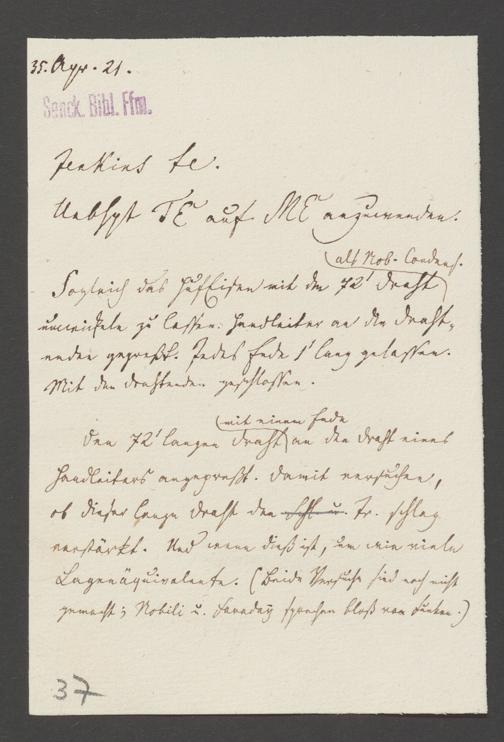 35. Apr. 21.
Senck. Bibl. Ffm.
Jenkins &c.
Uebhpt TE auf ME anzuwenden.
als Nob. Condens.
Sogleich das Hufeisen mit dem 72' Draht
umwickeln zu lassen. Handleiter an die Draht-
enden gepreßt. Jedes Ende 1' lang gelassen.
Mit den Drahtenden geschlossen.
mit einem Ende
Den 72' langen Draht an den Draht eines
Handleiters angepreßt. Damit versuchen,
ob dieser lange Draht den Tr. schlag
verstärkt. Und wenn dieß ist, um wie viele
Lagenäquivalente. (Beide Versuche sind noch nicht
gemacht; Nobili u. Faraday sprechen bloß von Funken.)
37